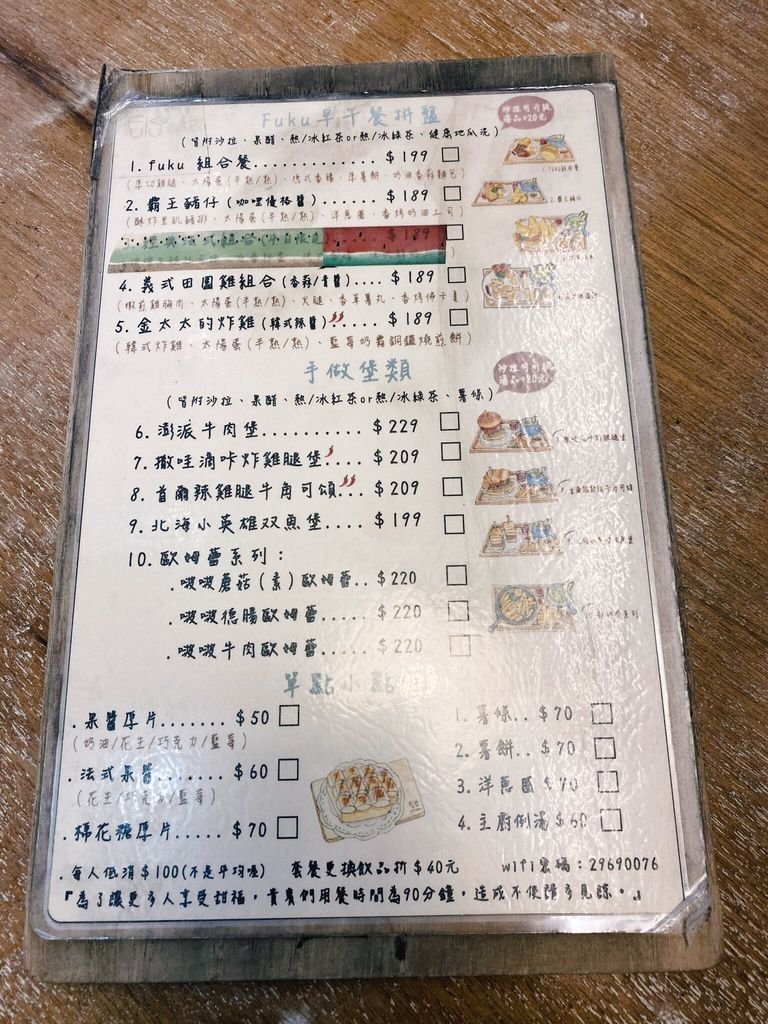 Fuku早午餐拼盤
沙拉可升級
湯品+20元
(皆附沙拉、果醋、熱/冰紅茶or熱/冰綠茶、健康地瓜泥)
1. fuku 組合餐............. $ 199
(厚切雞腿、太陽蛋(半熟/熟)、德式香腸、厚薯餅、奶油香蒜麵包)
2. 霸王豬仔(咖哩優格醬)..... $ 189
(酥炸里肌豬排、太陽蛋(半熟/熟)、洋蔥圈、香烤奶油土司)
$ 189
4. 義式田園雞組合(香蒜/青醬).... $ 189
(嫩煎雞胸肉、太陽蛋(半熟/熟)、火腿、香草薯丸、香烤佛卡夏)
5. 金太太的炸雞(韓式辣醬).... $ 189
(韓式炸雞、太陽蛋(半熟/熟)、藍莓奶霜銅鑼燒煎餅)
手做堡類
沙拉可升級
湯品+20元
(皆附沙拉、果醋、熱/冰紅茶or熱/冰綠茶、薯條)
6. 澎派牛肉堡........... $ 229
7. 撒哇滴咔炸雞腿堡.... $ 209
8. 首爾辣雞腿牛角可頌... $ 209
9. 北海小英雄双魚堡.... $ 199
10. 歐姆蕾系列：
. 啵啵蘑菇(素)歐姆蕾.. $ 220
. 啵啵德腸歐姆蕾..... $ 220
. 啵啵牛肉歐姆蕾..... $ 220
單點小點
. 果醬厚片....... $ 50
(奶油/花生/巧克力/藍莓)
. 法式果醬....... $ 60
(花生/巧克力/藍莓)
. 棉花糖厚片..... $ 70
1. 薯條.. $ 70
2. 薯餅.. $ 70
3. 洋蔥圈 $ 70
4. 主廚例湯 $ 60
. 每人低消$100(不是平均喔) 套餐更換飲品折$40元 wifi密碼：29690076
『為了讓更多人享受甜福，貴賓們用餐時間為90分鐘，造成不便請多見諒。』